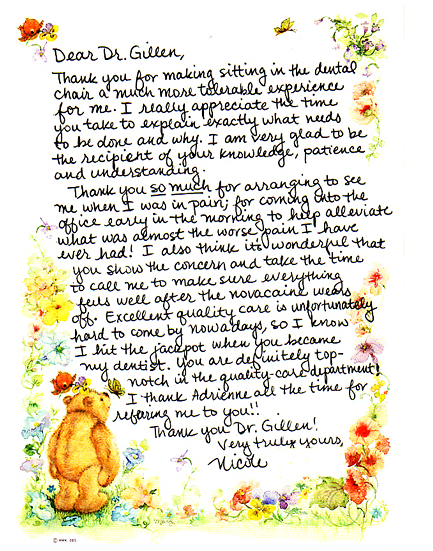 Dear Dr. Gillen,
Thank you for making sitting in the dental
chair a much more tolerable experience
for me. I really appreciate the time
you take to explain exactly what needs
to be done and why. I am very glad to be
the recipient of your knowledge, patience
and understanding.
Thank you so much for arranging to see
me when I was in pain; for coming into the
office early in the morning to help alleviate
what was almost the worse pain I have
ever had! I also think its wonderful that
you show the concern and take the time
to call me to make sure everything
feels well after the novacaine wears
off. Excellent quality care is unfortunately
hard to come by nowadays, so I know
I hit the jackpot when you became
my dentist. You are definitely top-
notch in the quality-care department!
I thank Adrienne all the time for
refering me to you!!
Thank you Dr. Gillen!
Very truly yours,
Nicole